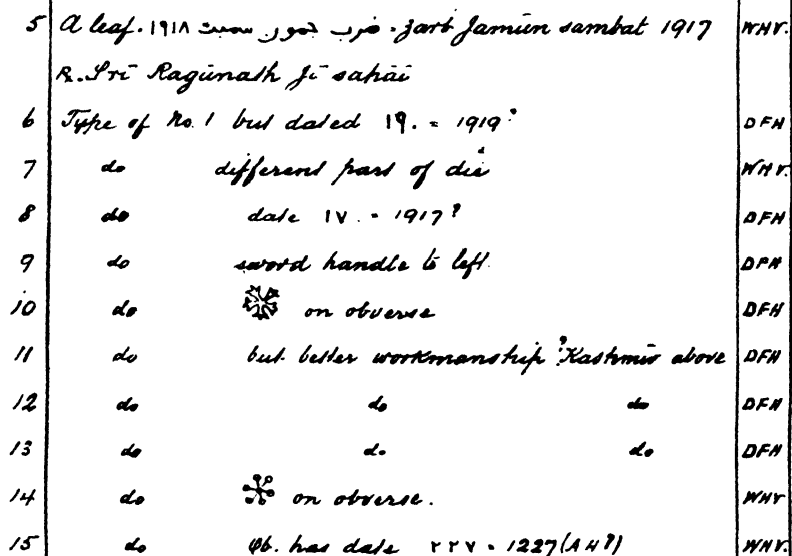 5 A leaf. ضرب جمون سمبت ١٩١٨ = zarb Jamūn sambat 1917 WHV.
R. Srī Ragūnath Jī sahāī
6 Type of No. 1 but dated ١٩. = 1919? DFH
7 do different part of die WHV.
8 do date ١٧. = 1917? DFH
9 do sword handle to left DFH
10 do on obverse DFH
11 do but better workmanship ? Kashmir above DFH
12 do do do DFH
13 do do do DFH
14 do on obverse. WHV
15 do Ob. has date ٢٢٧ = 1227 (AH?) WHV.